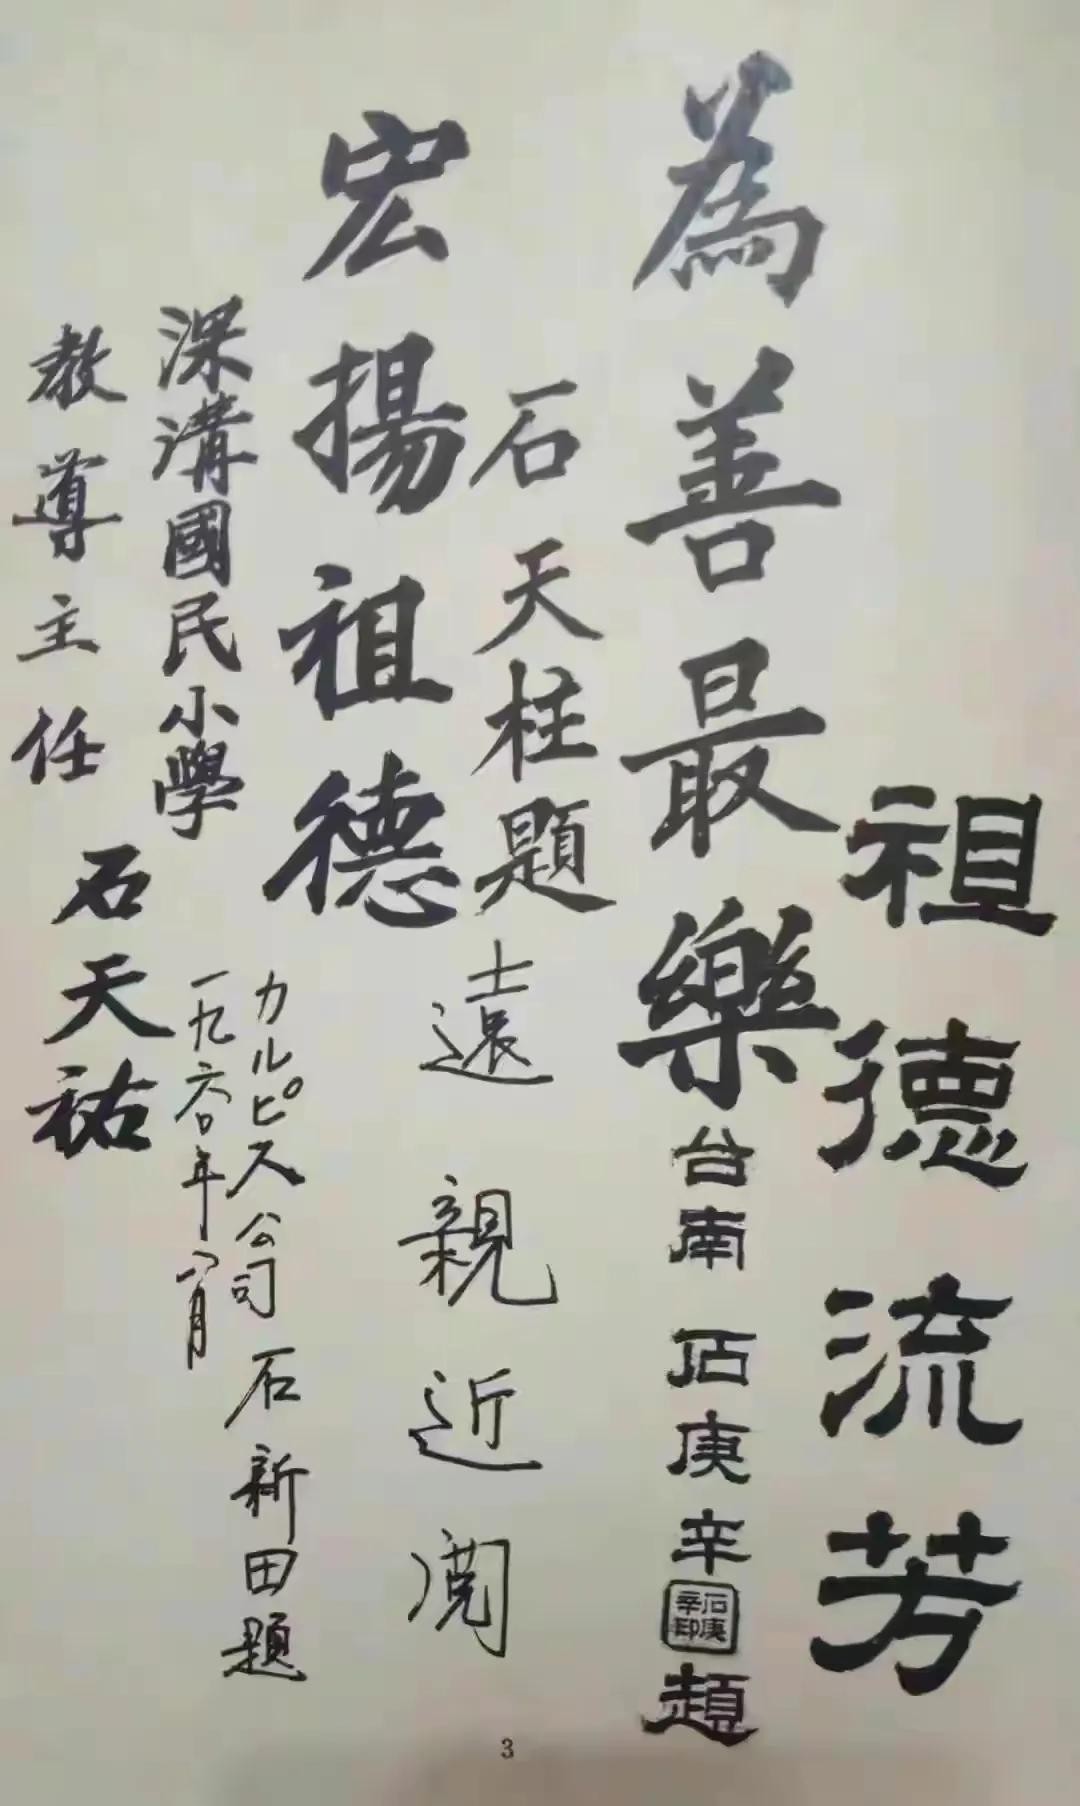 祖德流芳
台南 石庚辛 題
石庚辛印
為善最樂
石天柱題
遠親近閱
カルピス公司 石新田題
一九六〇年八月
宏揚祖德
深溝國民小學
教導主任
石天祐
3